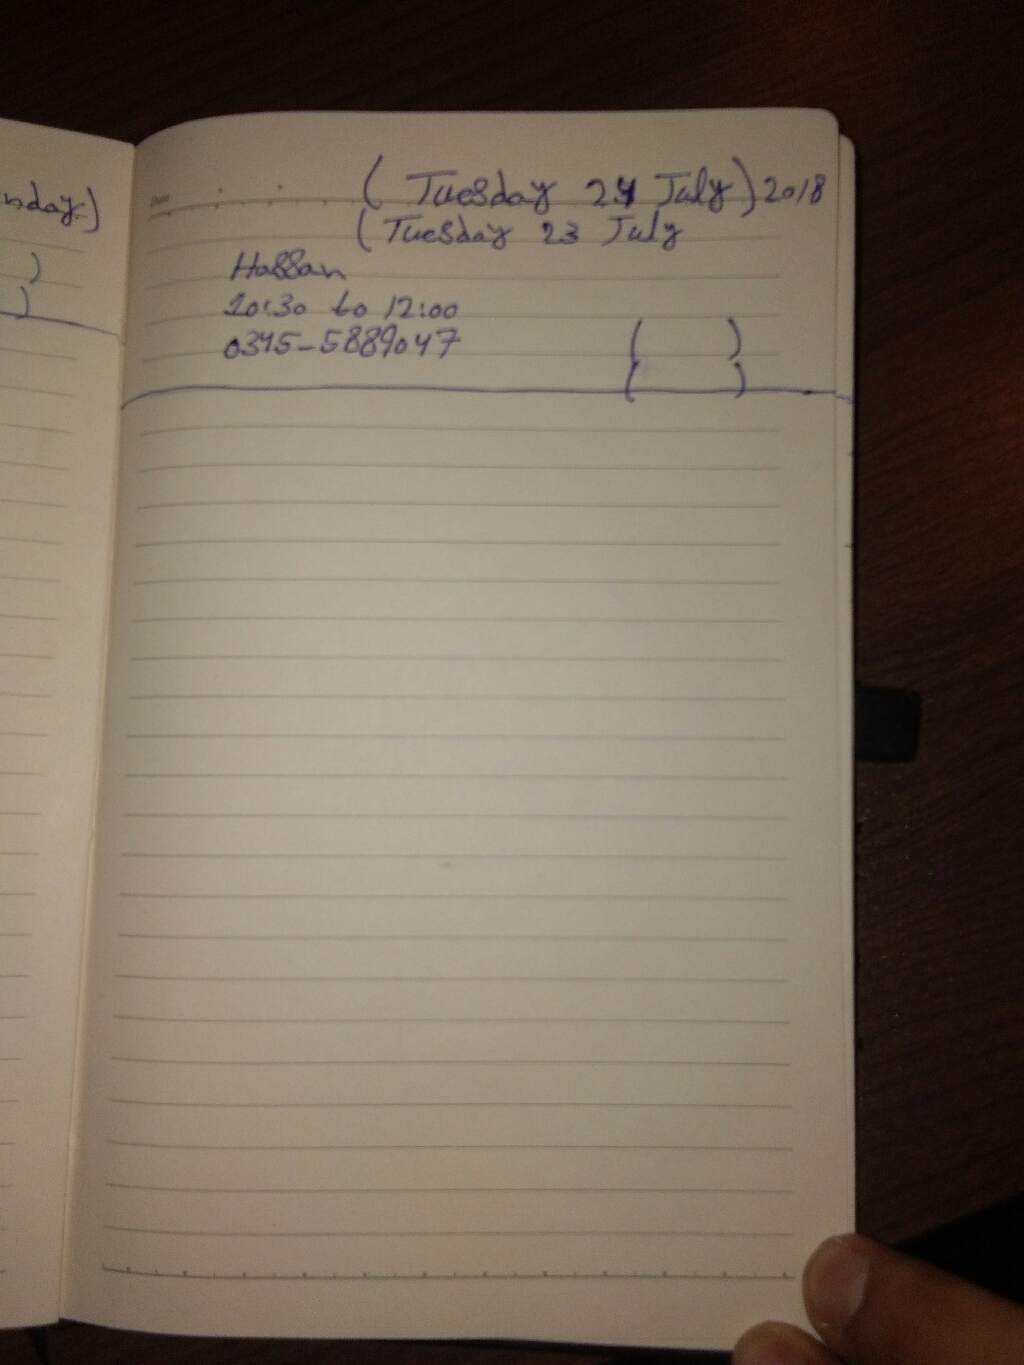 nday)
)
)
Date
( Tuesday 24 July) 2018
( Tuesday 23 July
Hassan
10:30 to 12:00
0345-5889047
( )
( )